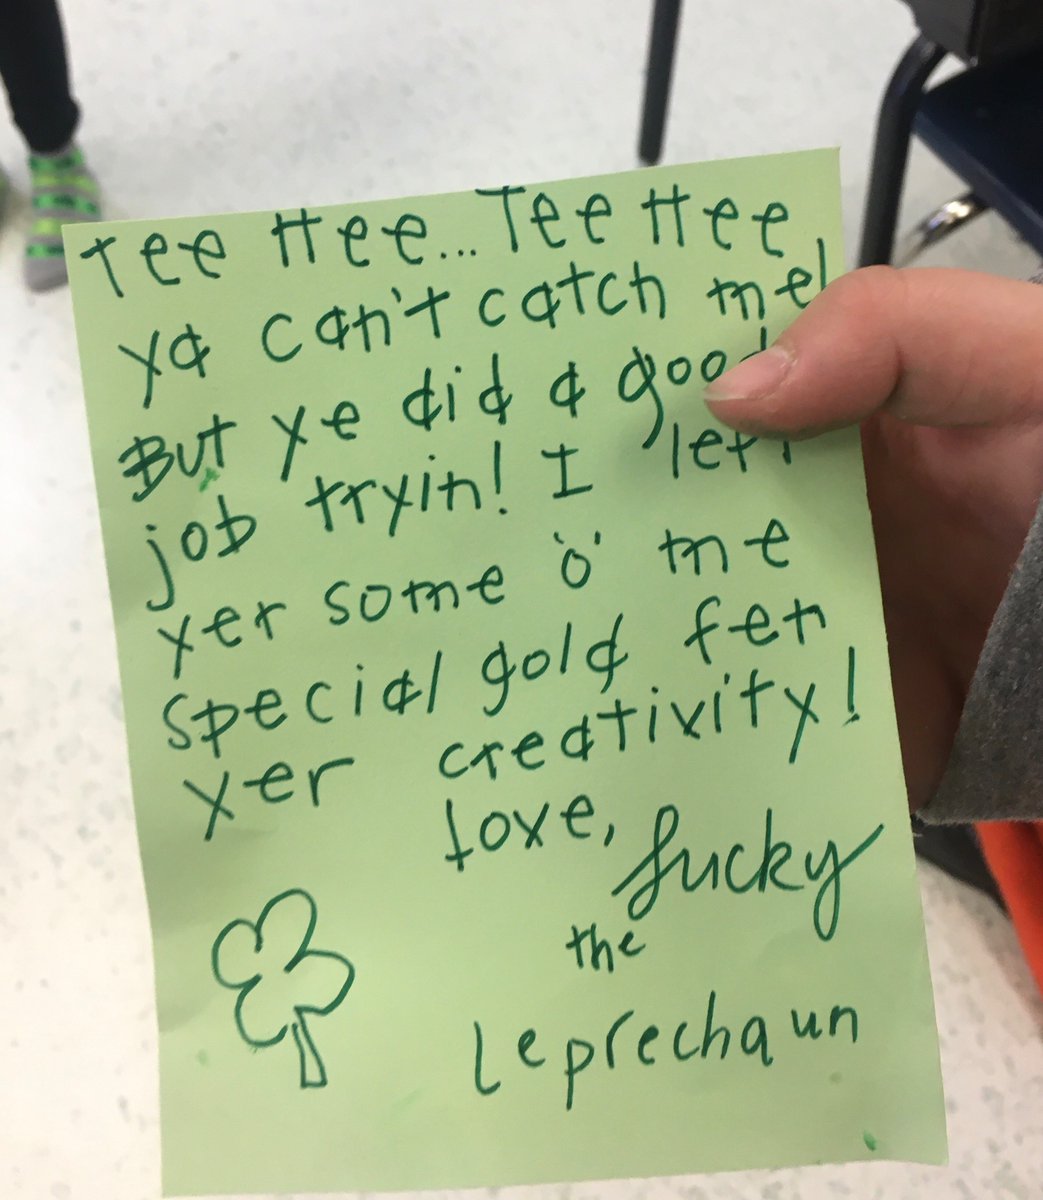 Tee Hee... Tee Hee
ya can't catch me!
But ye did a good
job tryin! I left
yer some 'o' me
special gold fer
yer creativity!
Love, Lucky
the
Leprechaun